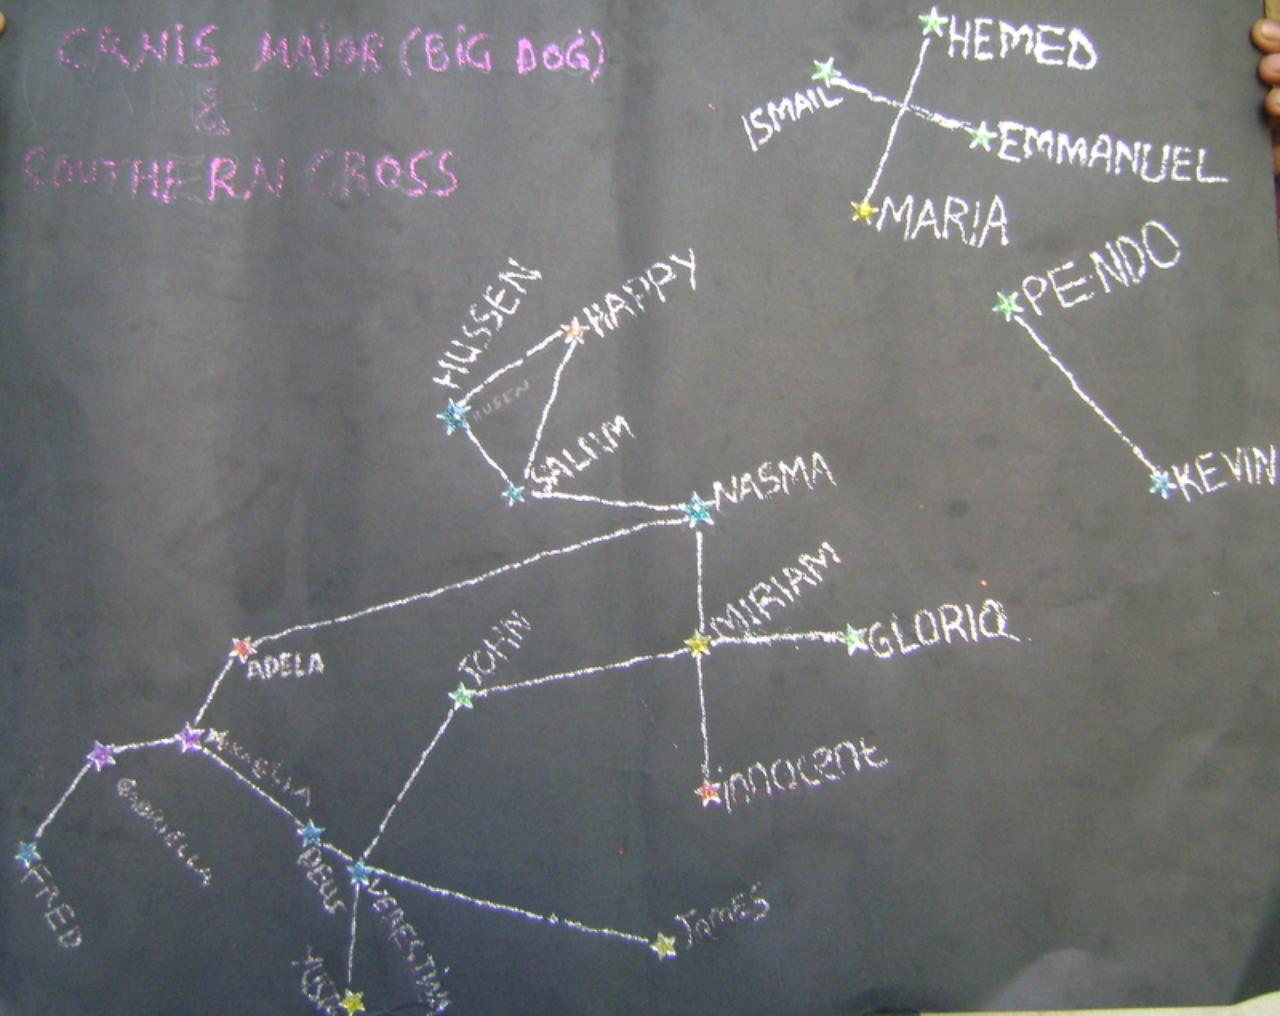 CANIS MAJOR (BIG DOG)
&
SOUTHERN CROSS
HEMED
ISMAIL
EMMANUEL
MARIA
PENDO
HUSSEN
HAPPY
HUSEN
SALIIM
NASMA
KEVIN
MIRIAM
GLORIA
JOHN
ADELA
MIKAELIA
innocent
GABRIELLA
DEUS
FRED
VERESTINA
JAMES